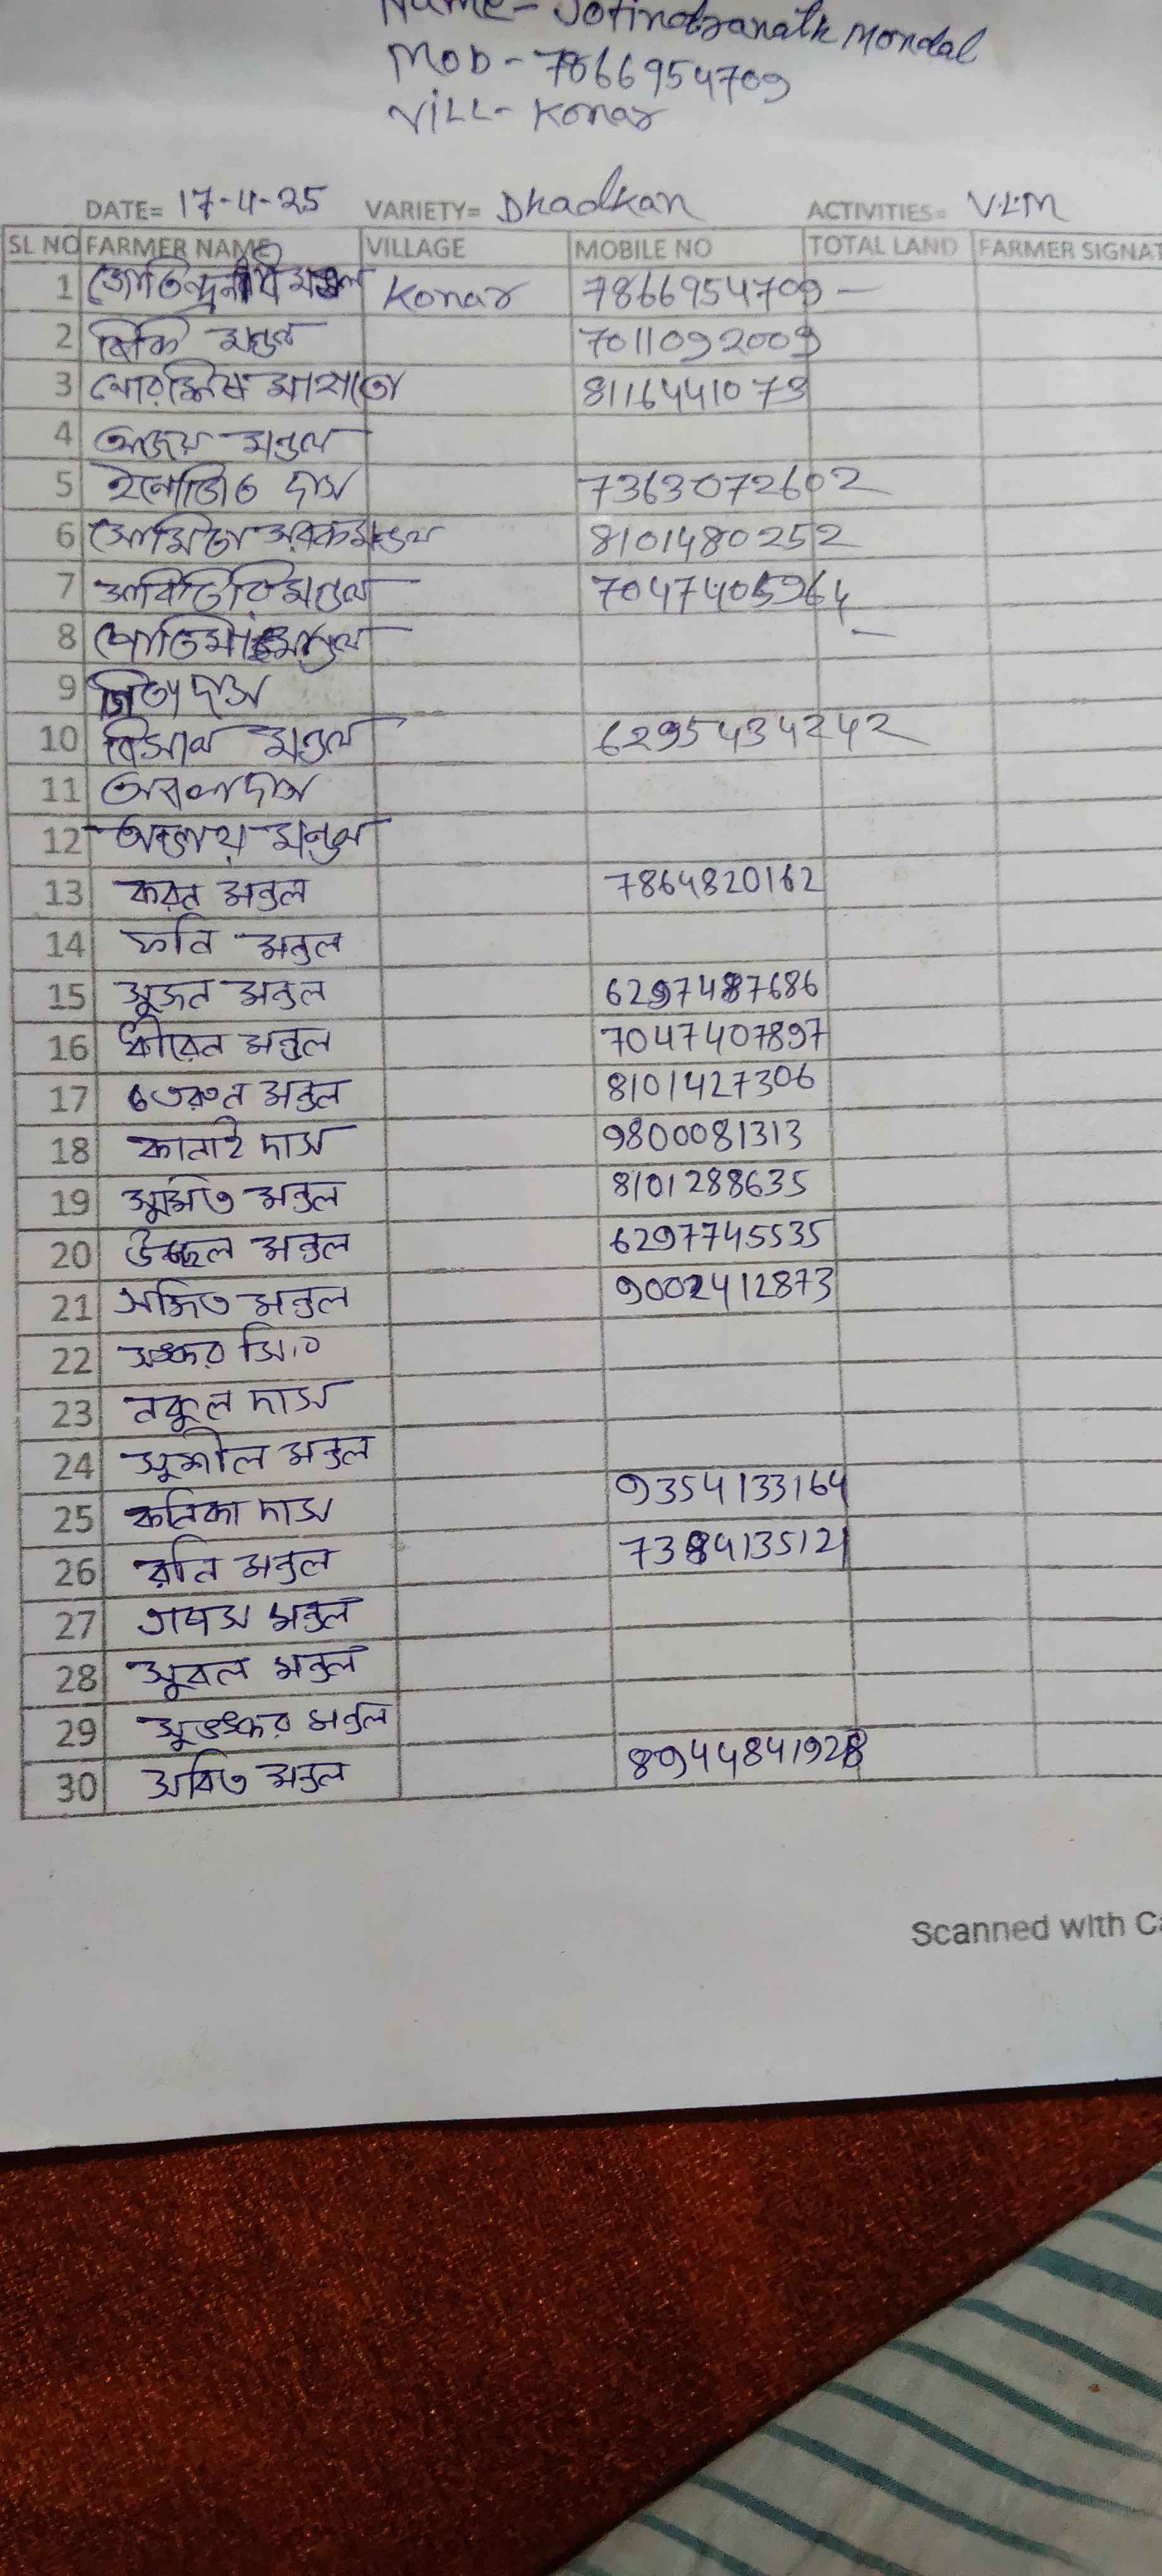 Name - Jotindranath Mondal
Mob - 7866954709
Vill - Konar
DATE= 17-4-25 VARIETY= Dhadkan ACTIVITIES= V.L.M
SL NO FARMER NAME VILLAGE MOBILE NO TOTAL LAND FARMER SIGNAT
1 Konar 7866954709 —
2 মন্ডল 7011092009
3 8116441073
4 অজয় মন্ডল
5 দাস 7363072602
6 8101480252
7 মন্ডল
8 মন্ডল —
9 দাস
10 বিসাল মন্ডল 6295434242
11 দাস
12 মন্ডল
13 করন মন্ডল 7864820162
14 ফনি মন্ডল
15 সুজন মন্ডল 6297487686
16 ধীরেন মন্ডল 7047407897
17 তরুন মন্ডল 8101427306
18 কানাই দাস 9800081313
19 সুমিত মন্ডল 8101288635
20 উজ্জল মন্ডল 6297745535
21 সজিত মন্ডল 9002412873
22 সঙ্কর
23 নকুল দাস
24 সুশীল মন্ডল
25 কনিকা দাস 9354133164
26 রনি মন্ডল 7384135121
27 তাপস মন্ডল
28 সুবল মন্ডল
29 সুভঙ্কর মন্ডল
30 মন্ডল 8944841928
Scanned with Ca